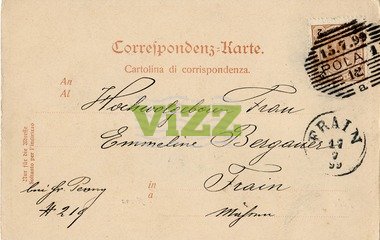 Correspondenz-Karte.
Cartolina di corrispondenza.
An
Al
15.7.99
POLA 1
12
a
Hochwolgeboren Frau
Emmeline Bergauer
VIZZ
FRAIN
17
7
99
in
a
Frain
Mähren
bei Fr
# 219
Nur für die Adresse
Solamente per l'indirizzo